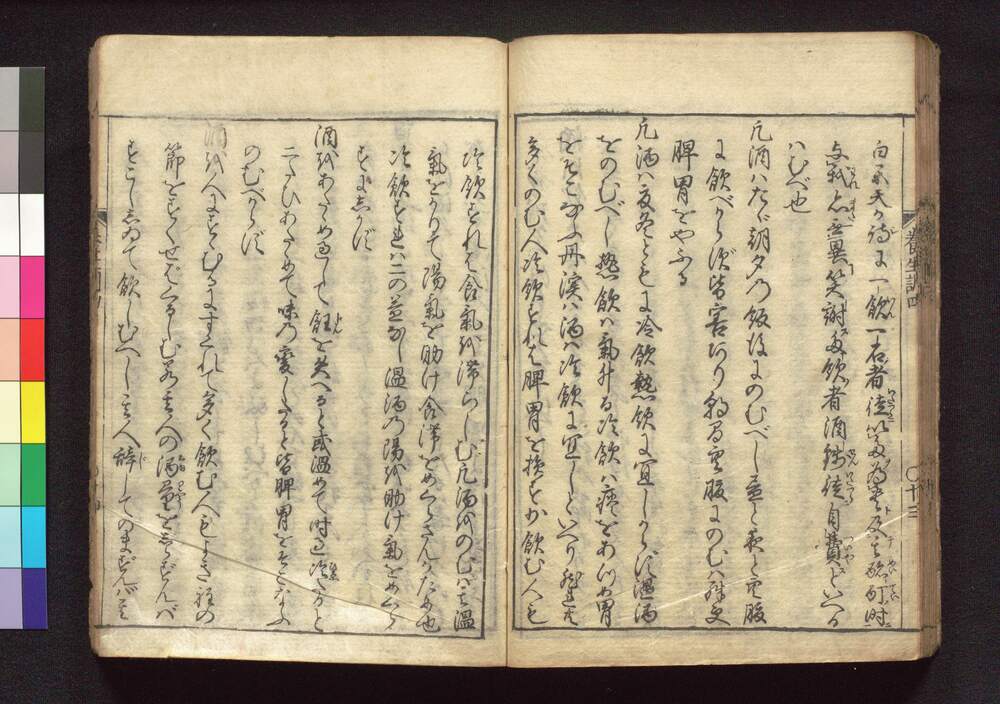 白楽天が詩に一飲一石者徒以多為貴及其酩酊時
与我亦無異笑謝多飲者酒銭徒自費といへる
ハむべ也
凡酒ハたゞ朝夕の飯後にのむべし昼と夜と空腹
に飲べからず皆害あり朝間空腹にのむハ殊更
脾胃をやぶる
凡酒ハ夏冬ともに冷飲熱飲に宜しからず温酒
をのむべし熱飲ハ気升る冷飲ハ痰をあつめ胃
をそこなふ丹溪ハ酒ハ冷飲に宜しといへり然共
多くのむ人冷飲すれば脾胃を損ずか飲む人も
冷飲すれば食氣を滞らしむ凡酒をのむハ其温
氣をかりて陽氣を助け食滞をめぐらさんがため也
冷飲すれハ二の益なし温酒の陽を助け氣をめぐら
すにしかず
酒をあたゝめ過して飪を失へると或温めて時過冷たると
二たびあたゝめて味の變じたると皆脾胃をそこなふ
のむべからず
酒を人にすゝむるにすぐれて多く飲む人もよき程の
節をすぐせばくるしむ若其人の酒量をしらずんバ
すこししゐて飲しむべし其人辞してのまずんバそ
養生訓四
○十三